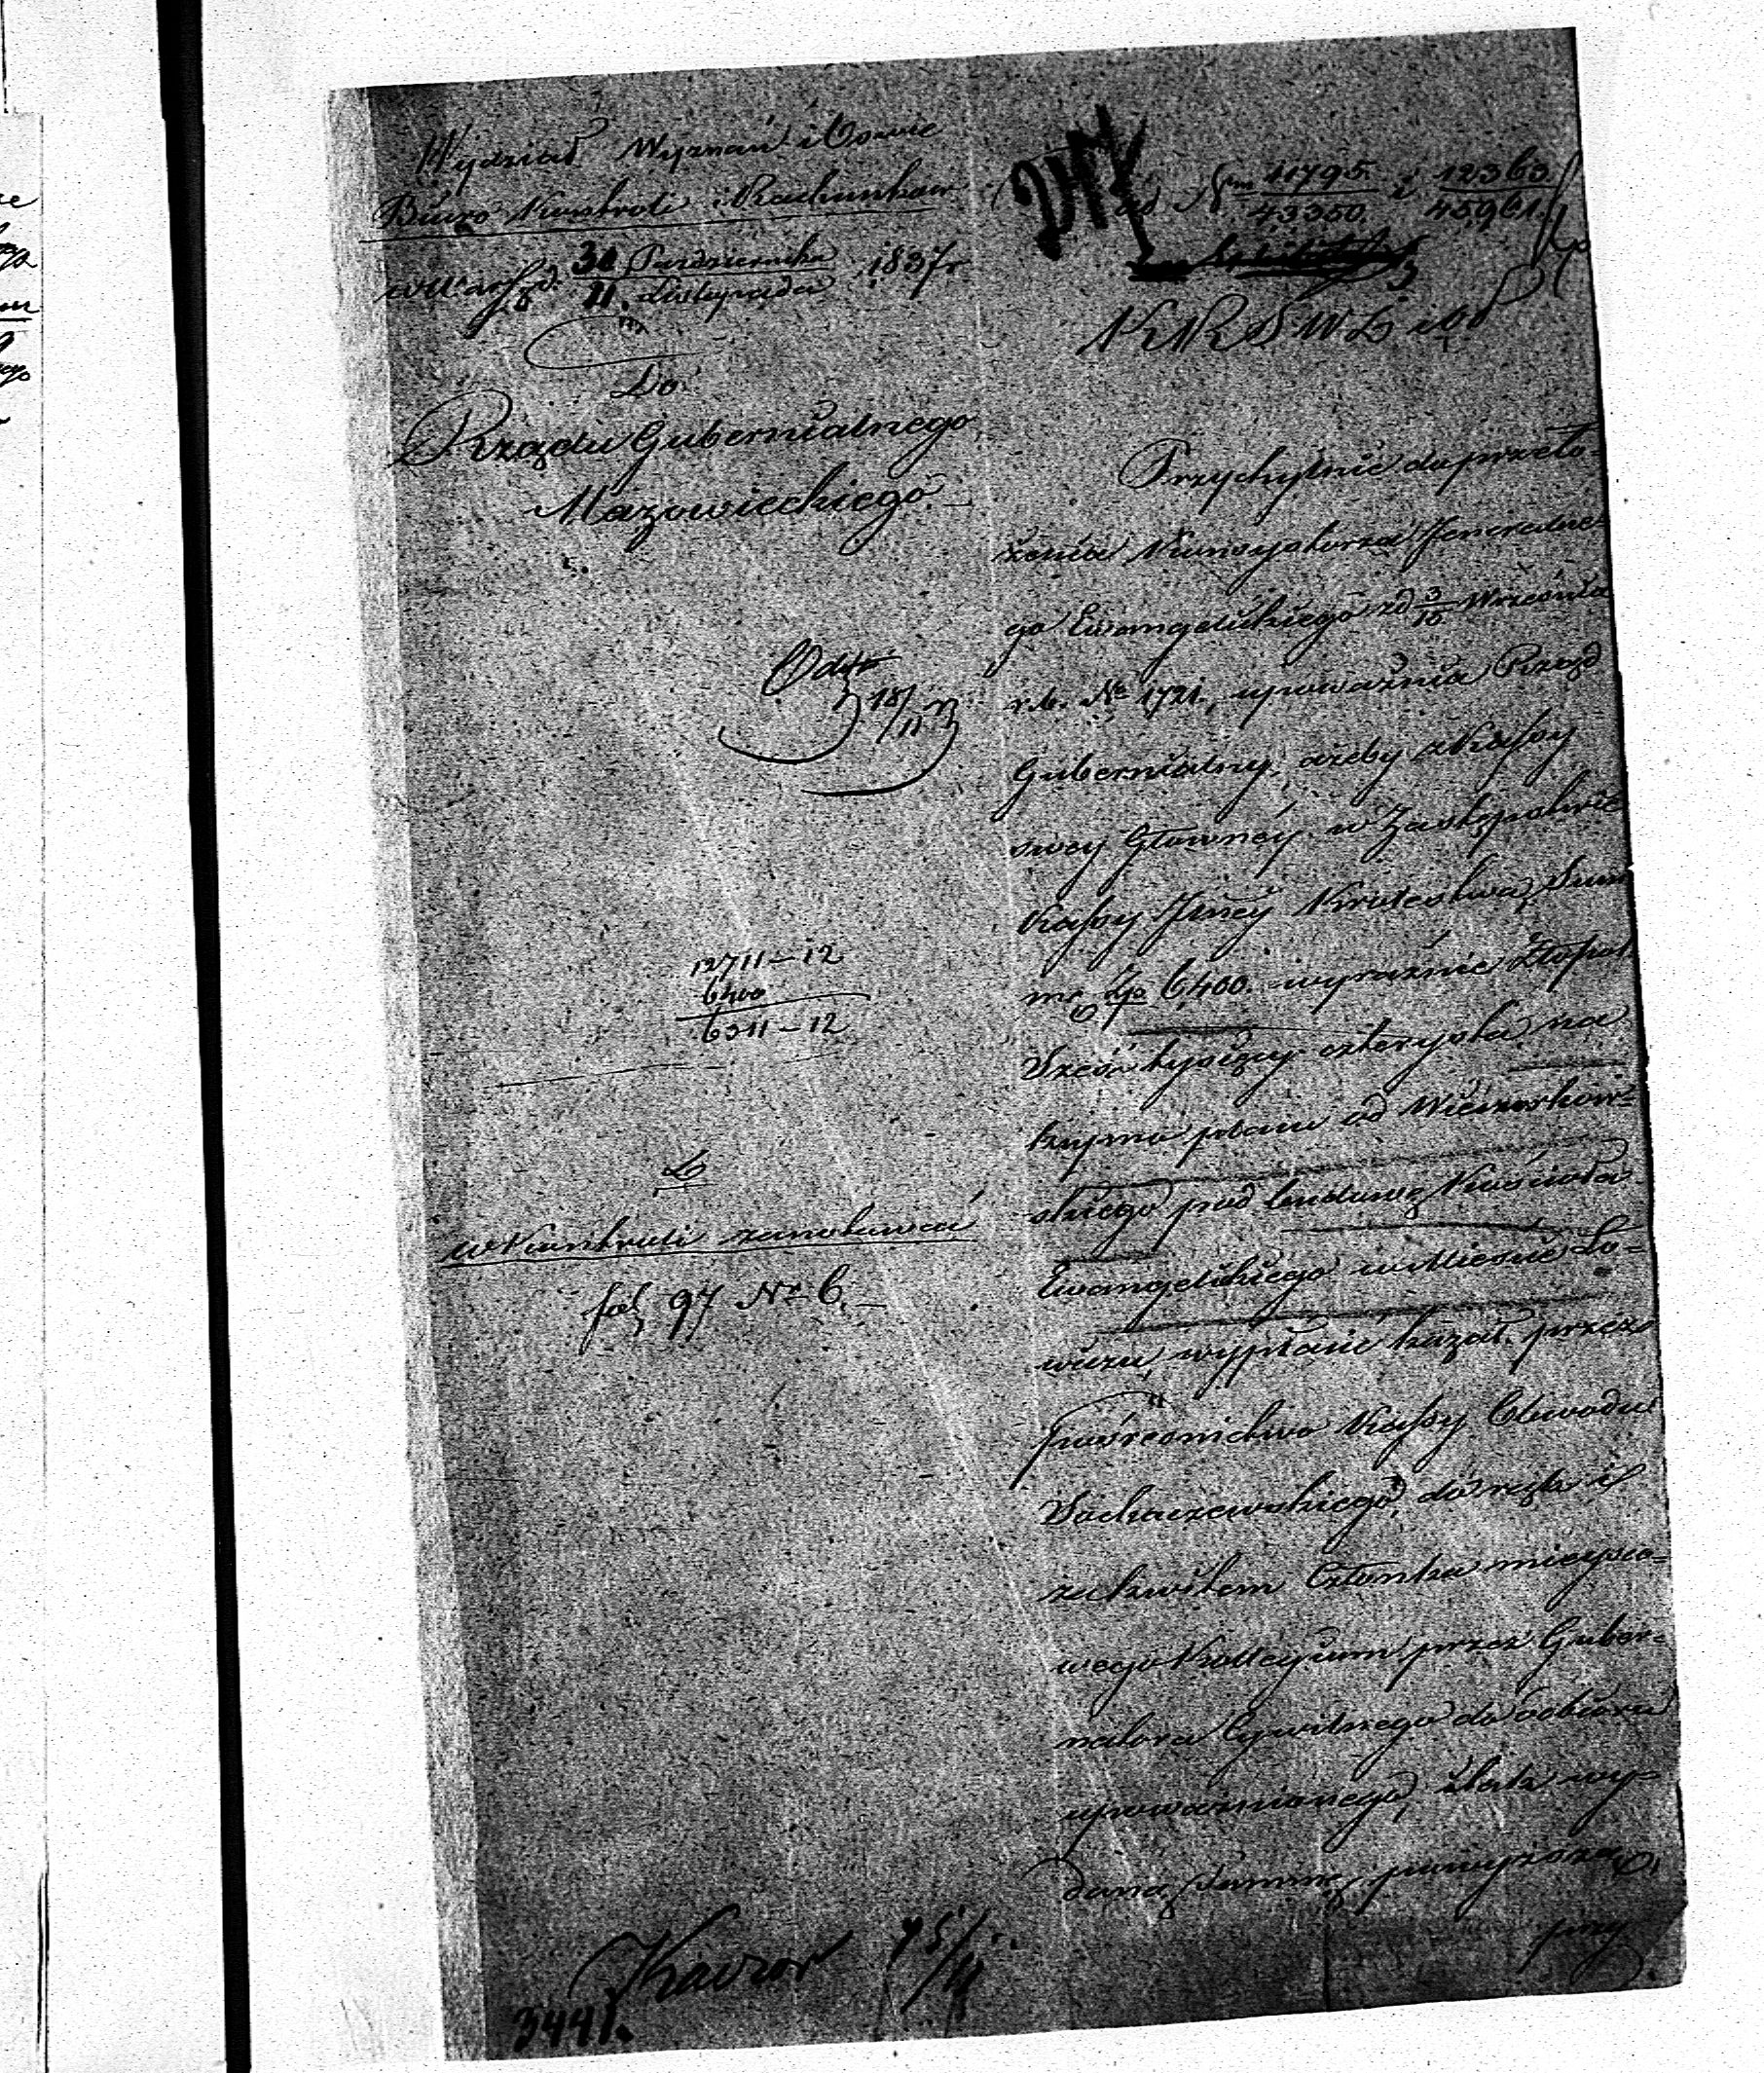 Wydział Wyznań i Oświe
Biuro Kontroli i Rachunkow
w Warsz. d. 30 Października / 11. Listopada 1837 r
Do
Rządu Gubernialnego
Mazowieckiego.
18/11
12711 – 12
6400
6311 – 12
w Kontroli zanotować
fol 97 Nr 6.
3441.
ad Nrm 11795/43350 i 12363/45961.
K R S W D i O P
Przychylnie do przeło-
żenia Konsystorza Jeneralne-
go Ewangelickiego z d 3/15 Września
r. b. No 1721., upoważnia Rząd
Gubernialny, ażeby z Kassy
swey Głowney w Zastępstwie
Kassy Jlney Krolestwa, Sum
mę Zp 6,400. wyraźnie Złopol
Sześć tysięcy czterysta, na
kupno placu od Wieczorkow-
skiego pod budowę Kościoła
Ewangelickiego w Mieście Ło-
wiczu, wypłacić kazał przez
pośrednictwo Kassy Obwodu
Sochaczewskiego, do rąk i
za kwitem Członka mieysco-
wego Kollegium przez Guber-
natora Cywilnego do odbioru
upoważnionego, którą wy-
daną Summę powyższą,
przy